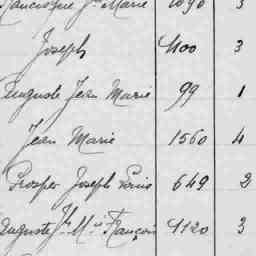 Francisque Jh Marie 1090 3
Joseph 1100 3
Auguste Jean Marie 99 1
Jean Marie 1560 4
Prosper Joseph Louis 649 2
Auguste Jh M. François 1120 3